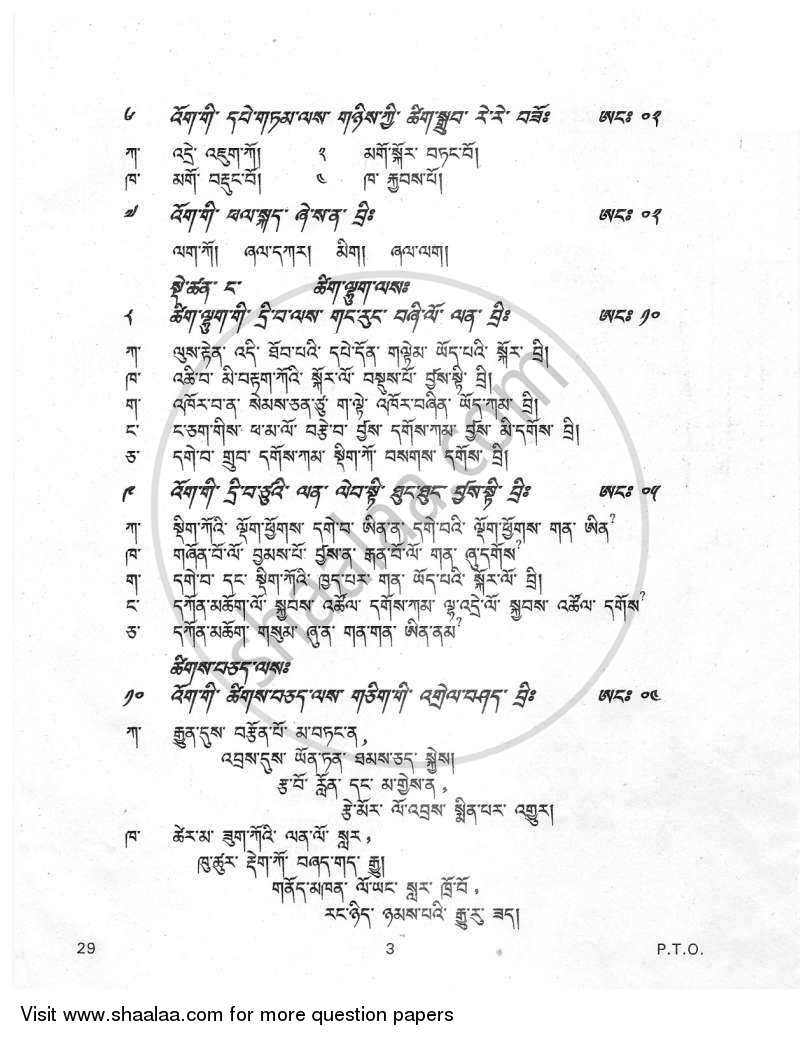 ༦ འོག་གི་ དཔེ་གཏམ་ལས་ གཉིས་ཀྱི་ ཚིག་སྒྲུབ་ རེ་རེ་ བཟོཿ ཨངཿ ༠༢
ཀ་ འདྲེ་ འཇུག་ཀོ། ༣ མགོ་སྐོར་ བཏང་བོ།
ཁ་ མགོ་ བརྡུང་བོ། ༤ ཁ་ རྒྱབས་པོ།
༧ འོག་གི་ ཕལ་སྐད་ ཞེ་ས་ན་ བྲིཿ ཨངཿ ༠༢
ལག་ཀོ། ཞལ་དཀར། མིག། ཞལ་ལག།
སྡེ་ཚན་ ང་ ཚིག་ལྷུག་ལསཿ
༨ ཚིག་ལྷུག་གི་ དྲི་བ་ལས་ གང་རུང་ བཞི་ལོ་ ལན་ བྲིཿ ཨངཿ ༡༠
ཀ་ ལུས་རྟེན་ འདི་ ཐོབ་པའི་ དཔེ་དོན་ གལྟེམ་ ཡོད་པའི་ སྐོར་ བྲི།
ཁ་ འཆི་བ་ མི་བརྟག་ཀོའི་ སྐོར་ལོ་ བསྡུས་པོ་ བྱོས་སྟི་ བྲི།
ག་ འཁོར་བ་ན་ སེམས་ཅན་ཙུ་ ག་ལྟེ་ འཁོར་བཞིན་ ཡོད་ཀམ་ བྲི།
ང་ ང་ཅག་གིས་ ཕ་མ་ལོ་ བརྩེ་བ་ བྱོས་ དགོས་ཀམ་ བྱོས་ མི་དགོས་ བྲི།
ཅ་ དགེ་བ་ གྲུབ་ དགོས་ཀམ་ སྡིག་ཀོ་ བསགས་ དགོས་ བྲི།
༩ འོག་གི་ དྲི་བ་ཙུའི་ ལན་ ལེབ་སྟི་ ཐུང་ཐུང་ བྱོས་སྟི་ བྲིཿ ཨངཿ ༠༥
ཀ་ སྡིག་ཀོའི་ ལྡོག་ཕྱོགས་ དགེ་བ་ ཨིན་ན་ དགེ་བའི་ ལྡོག་ཕྱོགས་ གན་ ཨིན?
ཁ་ གཞོན་བོ་ལོ་ བྱམས་པོ་ བྱོས་ན་ རྒན་བོ་ལོ་ གན་ ཞུ་དགོས?
ག་ དགེ་བ་ དང་ སྡིག་ཀོའི་ ཁྱད་པར་ གན་ ཡོད་པའི་ སྐོར་ལོ་ བྲི།
ང་ དཀོན་མཆོག་ལོ་ སྐྱབས་ འཚོལ་ དགོས་ཀམ་ ལྷ་འདྲེ་ལོ་ སྐྱབས་ འཚོལ་ དགོས?
ཅ་ དཀོན་མཆོག་ གསུམ་ ཞུ་ན་ གན་གན་ ཨིན་ནམ?
ཚིགས་བཅད་ལསཿ
༡༠ འོག་གི་ ཚིགས་བཅད་ལས་ གཅིག་གི་ འགྲེལ་བཤད་ བྲིཿ ཨངཿ ༠༤
ཀ་ རྒྱུན་དུས་ བརྩོན་པོ་ མ་བཏང་ན,
འབྲས་དུས་ ཡོན་ཏན་ ཐམས་ཅད་ སྐྱེས།
རྩ་བོ་ རློན་ དང་ མ་གྱེས་ན,
རྩེ་མོར་ ལོ་འབྲས་ སྨིན་པར་ འགྱུར།
ཁ་ ཚེར་མ་ ཟུག་ཀོའི་ ལན་ལོ་ སླར,
ཁུ་ཚུར་ རྡེག་ཀོ་ བཞད་གད་ རྒྱུ།
གནོད་མཁན་ ལོ་ཡང་ སླར་ ཁྲོ་བོ,
རང་ཉིད་ ཉམས་པའི་ རྒྱུ་རུ་ ཟད།
29 3 P.T.O.
shaalaa.com
Visit www.shaalaa.com for more question papers